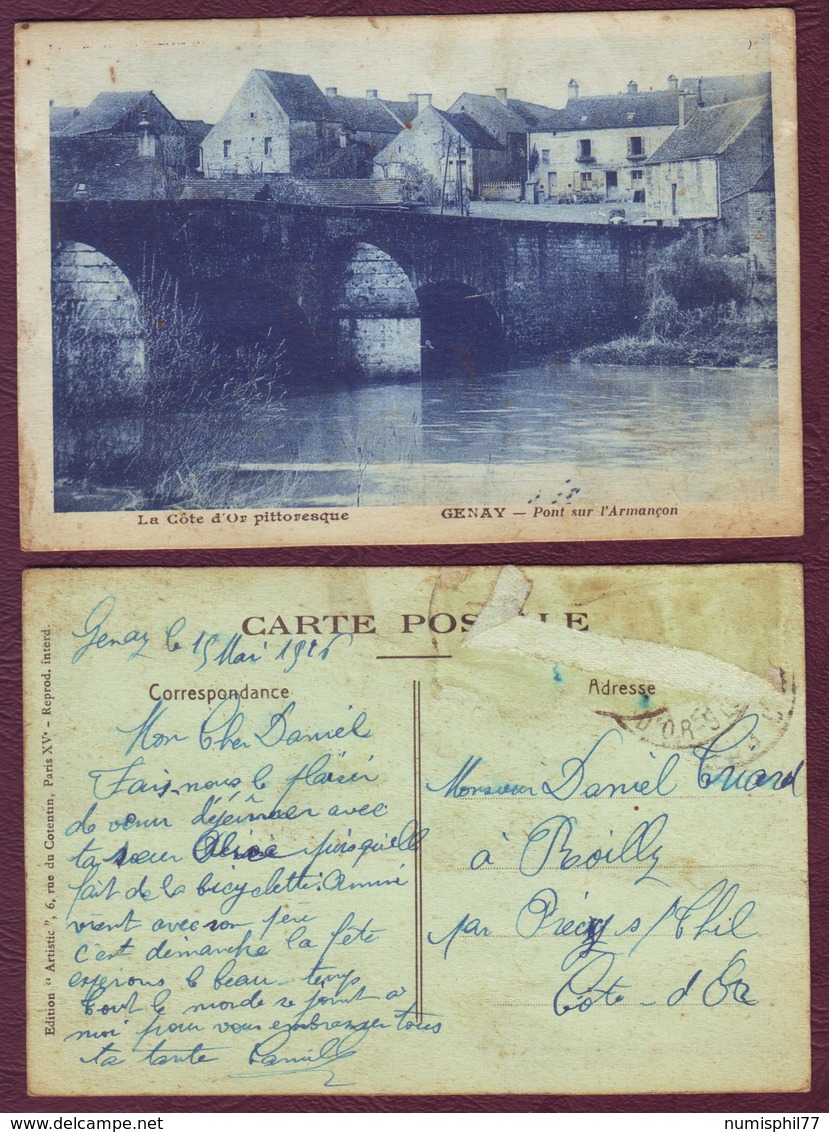 La Côte d'Or pittoresque
GENAY — Pont sur l'Armançon
CARTE POSTALE
Genay le 15 Mai 19
Correspondance
Adresse
Edition " Artistic ", 6, rue du Cotentin, Paris XVe - Reprod. interd.
Mon Cher Daniel
Fais-nous le plaisir
de venir déjeûner avec
ta sœur Alice puisqu'elle
fait de la bicyclette. Aimé
vient avec son père
c'est dimanche la fête
espérons le beau temps
tout le monde se joint à
moi pour vous embrasser tous
ta tante Camille
Monsieur Daniel
à Roilly
par Précy s/Thil
Côte-d'Or
D'OR
numisphil77